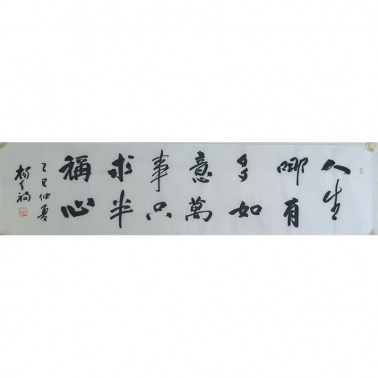 人生
哪有
多如
意萬
事只
求半
稱心
乙巳仲夏